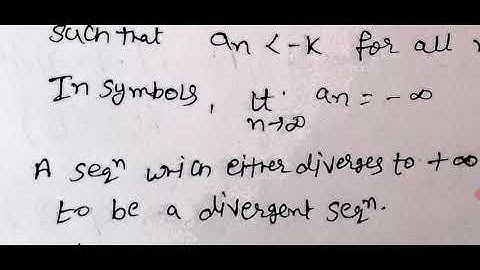 such that an < -K for all
In symbols, lt. an = -∞
n→∞
A seqn which either diverges to +∞
to be a divergent seqn.